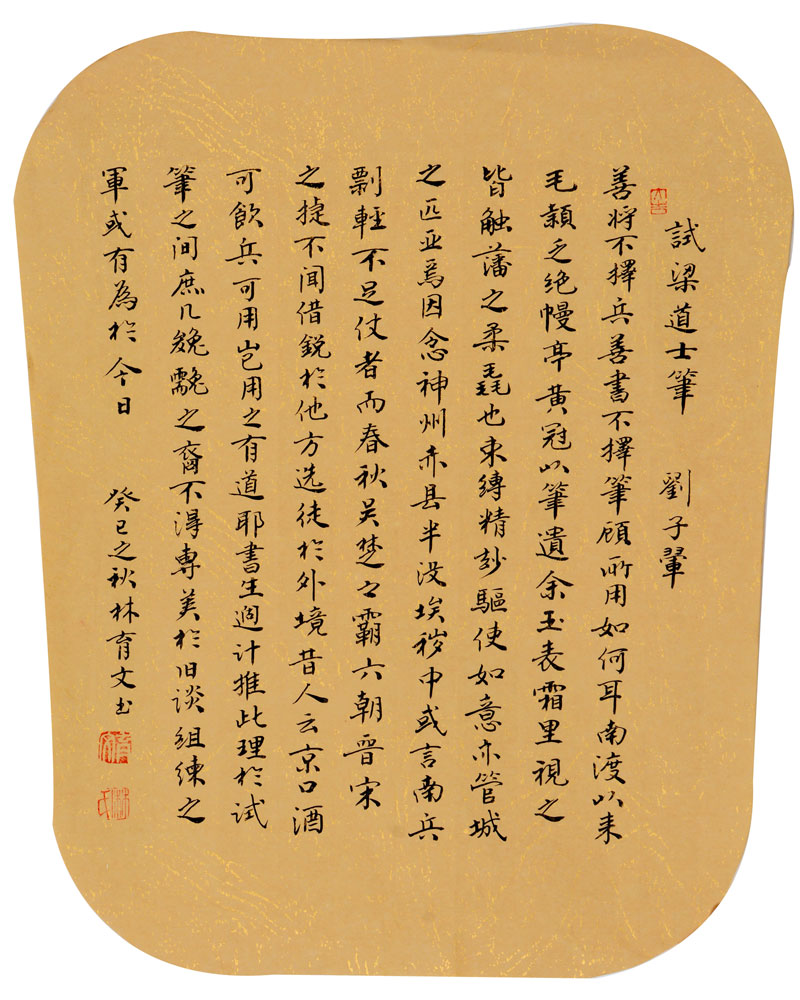 試梁道士筆 劉子翬
善将不擇兵善書不擇筆顧所用如何耳南渡以来
毛頴乏绝幔亭黄冠以筆遺余玉表霜里視之
皆触藩之柔毳也束縛精妙驅使如意亦管城
之匹亚焉因念神州赤县半没埃秽中或言南兵
剽輕不足仗者而春秋吴楚之霸六朝晋宋
之捷不闻借鋭於他方选徒於外境昔人云京口酒
可飲兵可用岂用之有道耶書生過计推此理於试
筆之间庶几㕙䨲之裔不得專美於旧谈组练之
軍或有為於今日
癸巳之秋林育文书